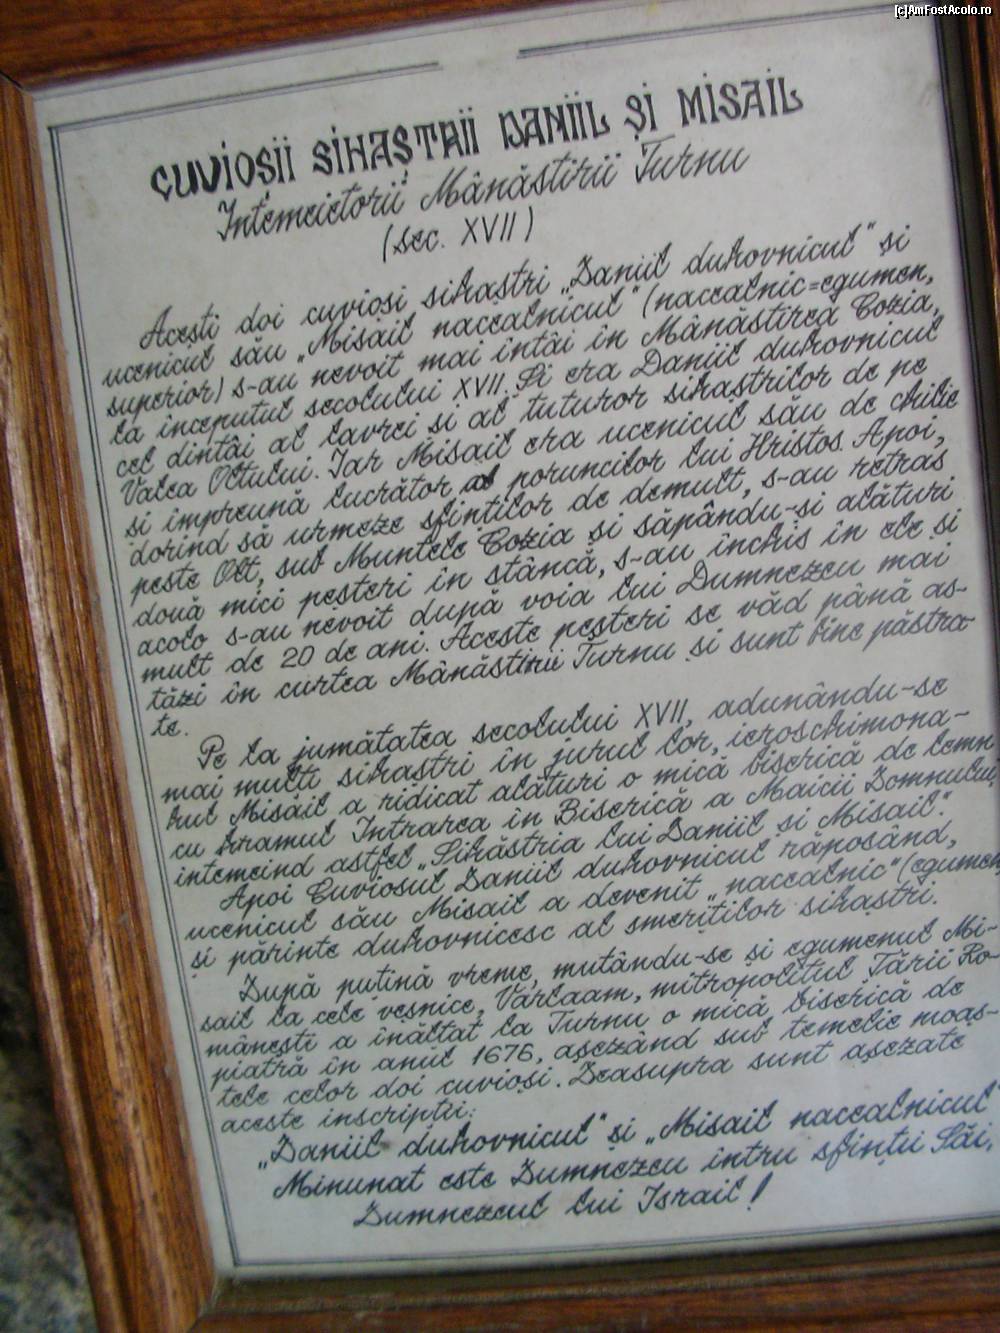 [c]AmFostAcolo.ro
CUVIOȘII SIHAȘTRII DANIIL ȘI MISAIL
Întemeietorii Mânăstirii Turnu
(sec. XVII)
Acești doi cuvioși sihaștri „Daniil duhovnicul" și
ucenicul său „Misail nacealnicul" (nacealnic=egumen,
superior) s-au nevoit mai întâi în Mânăstirea Cozia,
la începutul secolului XVII. Și era Daniil duhovnicul
cel dintâi al lavrei și al tuturor sihaștrilor de pe
Valea Oltului. Iar Misail era ucenicul său de chilie
și împreună lucrător al poruncilor lui Hristos. Apoi,
dorind să urmeze sfinților de demult, s-au retras
peste Olt, sub Muntele Cozia și săpându-și alături
două mici peșteri în stâncă, s-au închis în ele și
acolo s-au nevoit după voia lui Dumnezeu mai
mult de 20 de ani. Aceste peșteri se văd până as-
tăzi în curtea Mânăstirii Turnu și sunt bine păstra-
te.
Pe la jumătatea secolului XVII, adunându-se
mai mulți sihaștri în jurul lor, ieroschimona-
hul Misail a ridicat alături o mică biserică de lemn
cu hramul Intrarea în Biserică a Maicii Domnului,
întemeind astfel „Sihăstria lui Daniil și Misail".
Apoi Cuviosul Daniil duhovnicul răposând,
ucenicul său Misail a devenit „nacealnic" (egumen)
și părinte duhovnicesc al smeriților sihaștri.
După puțină vreme, mutându-se și egumenul Mi-
sail la cele veșnice, Varlaam, mitropolitul Țării Ro-
mânești a înălțat la Turnu o mică biserică de
piatră în anul 1676, așezând sub temelie moaș-
tele celor doi cuvioși. Deasupra sunt așezate
aceste inscripții:
„Daniil duhovnicul" și „Misail nacealnicul"
Minunat este Dumnezeu întru sfinții Săi,
Dumnezeul lui Israil!